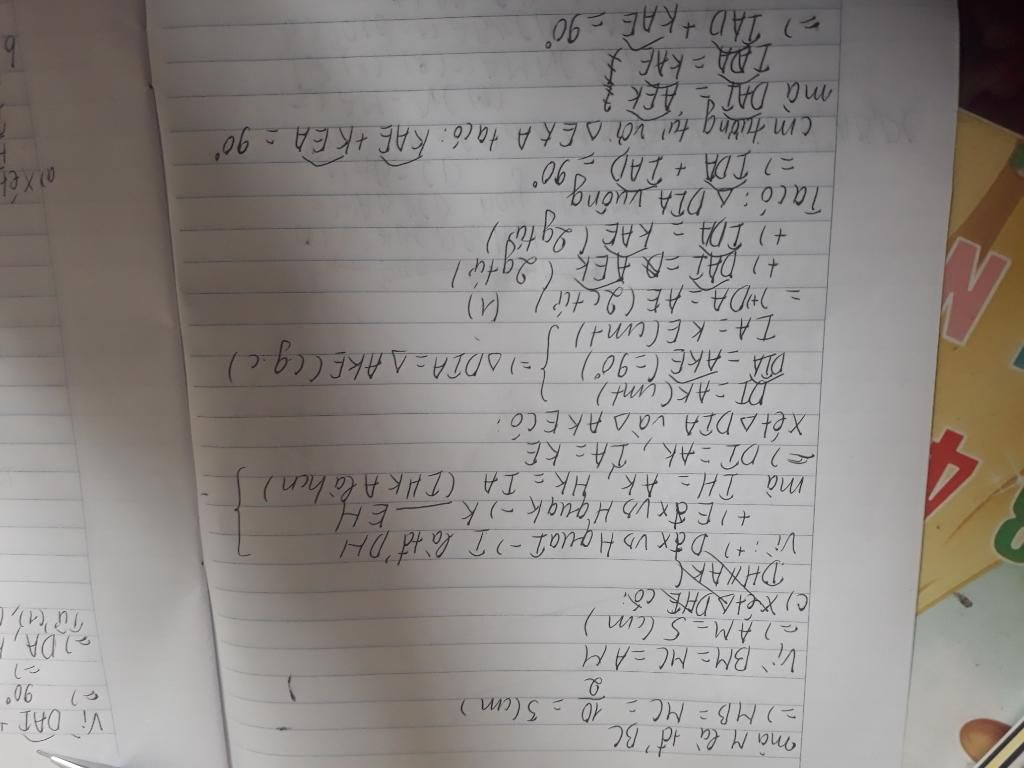 mà M là tđ' BC
=) MB = MC = 10/2 = 5 (cm)
Vì BM = MC = AM
=) AM = 5 (cm)
c) Xét △DAE có:
DHXAK
Vì: +) D đx vs H qua I -> I là tđ' DH
+) E đx vs H qua K -> K — EH
mà IH = AK, HK = IA (IHKA là hcn)
=) DI = AK, IA = KE
Xét △DIA và △AKE có:
DI = AK (cmt)
DIA = AKE (=90°) =) △DIA = △AKE (cg.c)
IA = KE (cmt)
=) +DA = AE (2ctứ) (1)
+) DAI = AEK (2gtứ)
+) IDA = KAE (2gtứ)
Ta có: △DIA vuông
=) IDA + IAD = 90°
cm tương tự với △EKA ta có: KAE + KEA = 90°
mà DAI = AEK }
IDA = KAE }
=) IAD + KAE = 90°
Vì DAI +
=) 90°
=)
=) DA,
Từ (1),
a) Xét
b